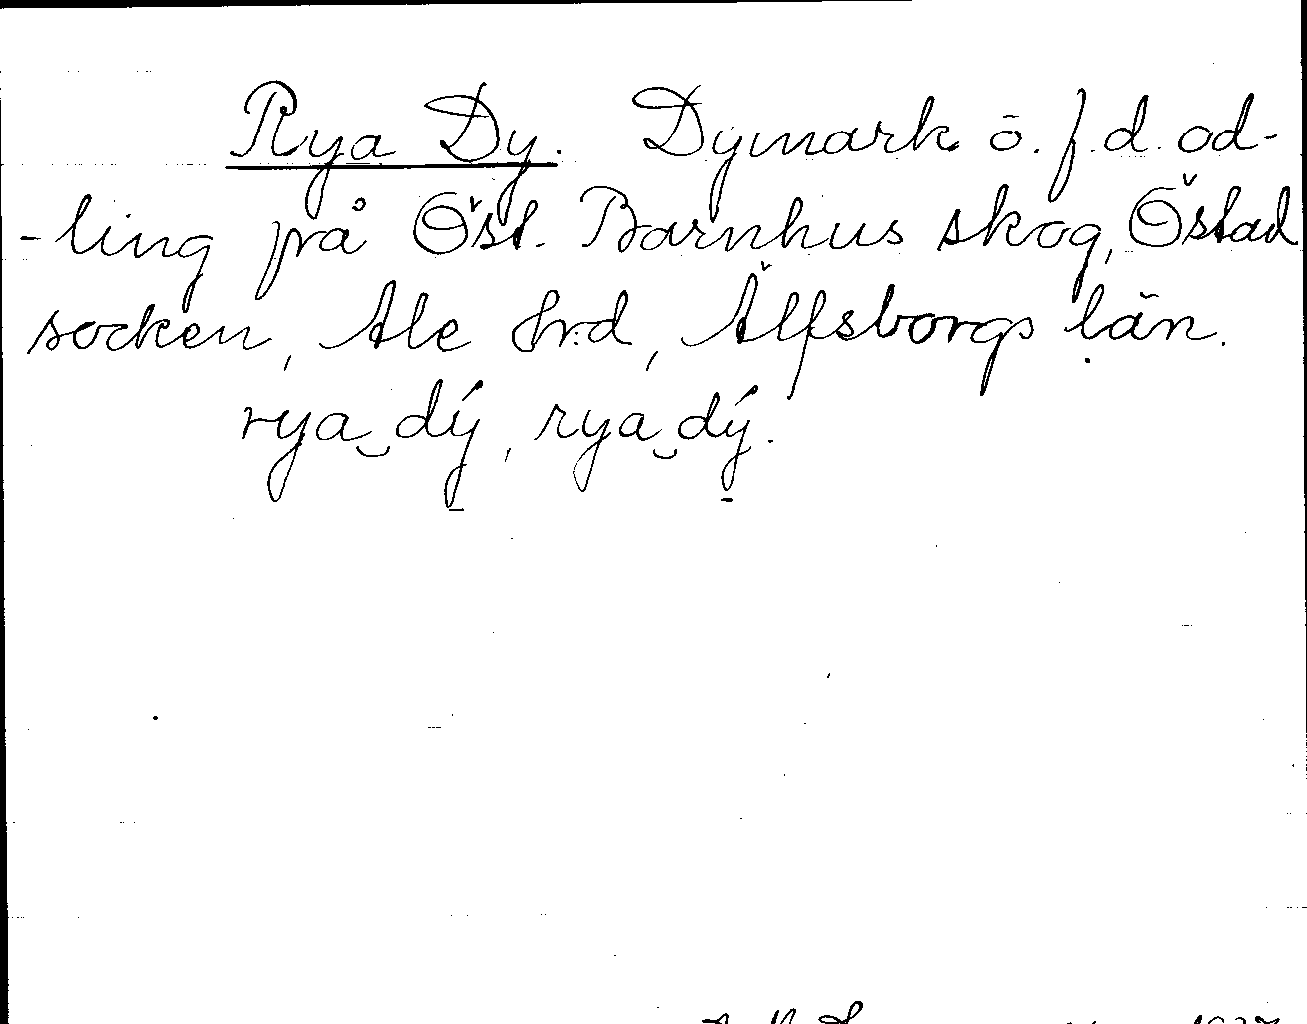 Rya Dy. Dymark ö. f.d. od-
-ling på Öst. Barnhus skog, Östad
socken, Ale hrd, Älfsborgs län.
rya‿dý, rya‿dý.